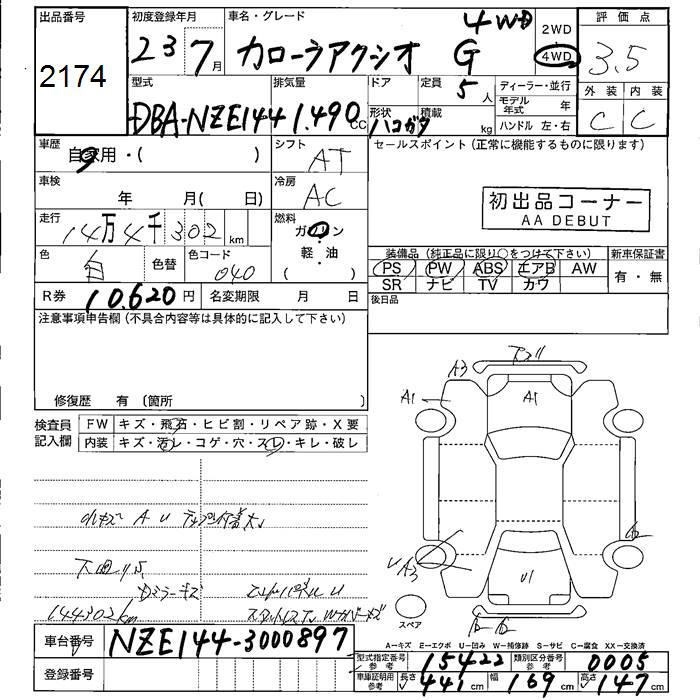 出品番号
2174
初度登録年月
23 7月
車名・グレード
カローラアクシオ G 4WD
2WD
4WD
評価点
3.5
外装 内装
C C
型式
DBA-NZE144
排気量
1.490cc
ドア
形状
ハコガタ
定員
5人
積載
kg
ディーラー・並行
モデル年式 年
ハンドル 左・右
車歴
自家用・( )
シフト
AT
セールスポイント(正常に機能するものに限ります)
車検
年 月( 日)
冷房
AC
初出品コーナー
AA DEBUT
走行
14万4千302km
燃料
ガソリン
軽・油
色
白
色替
色コード
040
装備品(純正品に限り○をつけて下さい)
PS PW ABS エアB AW
SR ナビ TV カワ
新車保証書
有・無
R券
10.620円
名変期限 月 日
後日品
注意事項申告欄(不具合内容等は具体的に記入して下さい)
修復歴 有(箇所
検査員
記入欄
FW キズ・飛石・ヒビ割・リペア跡・X要
内装 キズ・汚レ・コゲ・穴・スレ・キレ・破レ
A3
A1
A1
A2
A3
U1
スペア
小キズ A U
Dミラーキズ
144302km
車台番号
NZE144-3000897
登録番号
A-キズ E-エクボ U-凹み W-補修跡 S-サビ C-腐食 XX-交換済
型式指定番号
参考
15422
類別区分番号
参考
0005
車庫証明用
参考
長さ 441cm
幅 169cm
高さ 147cm